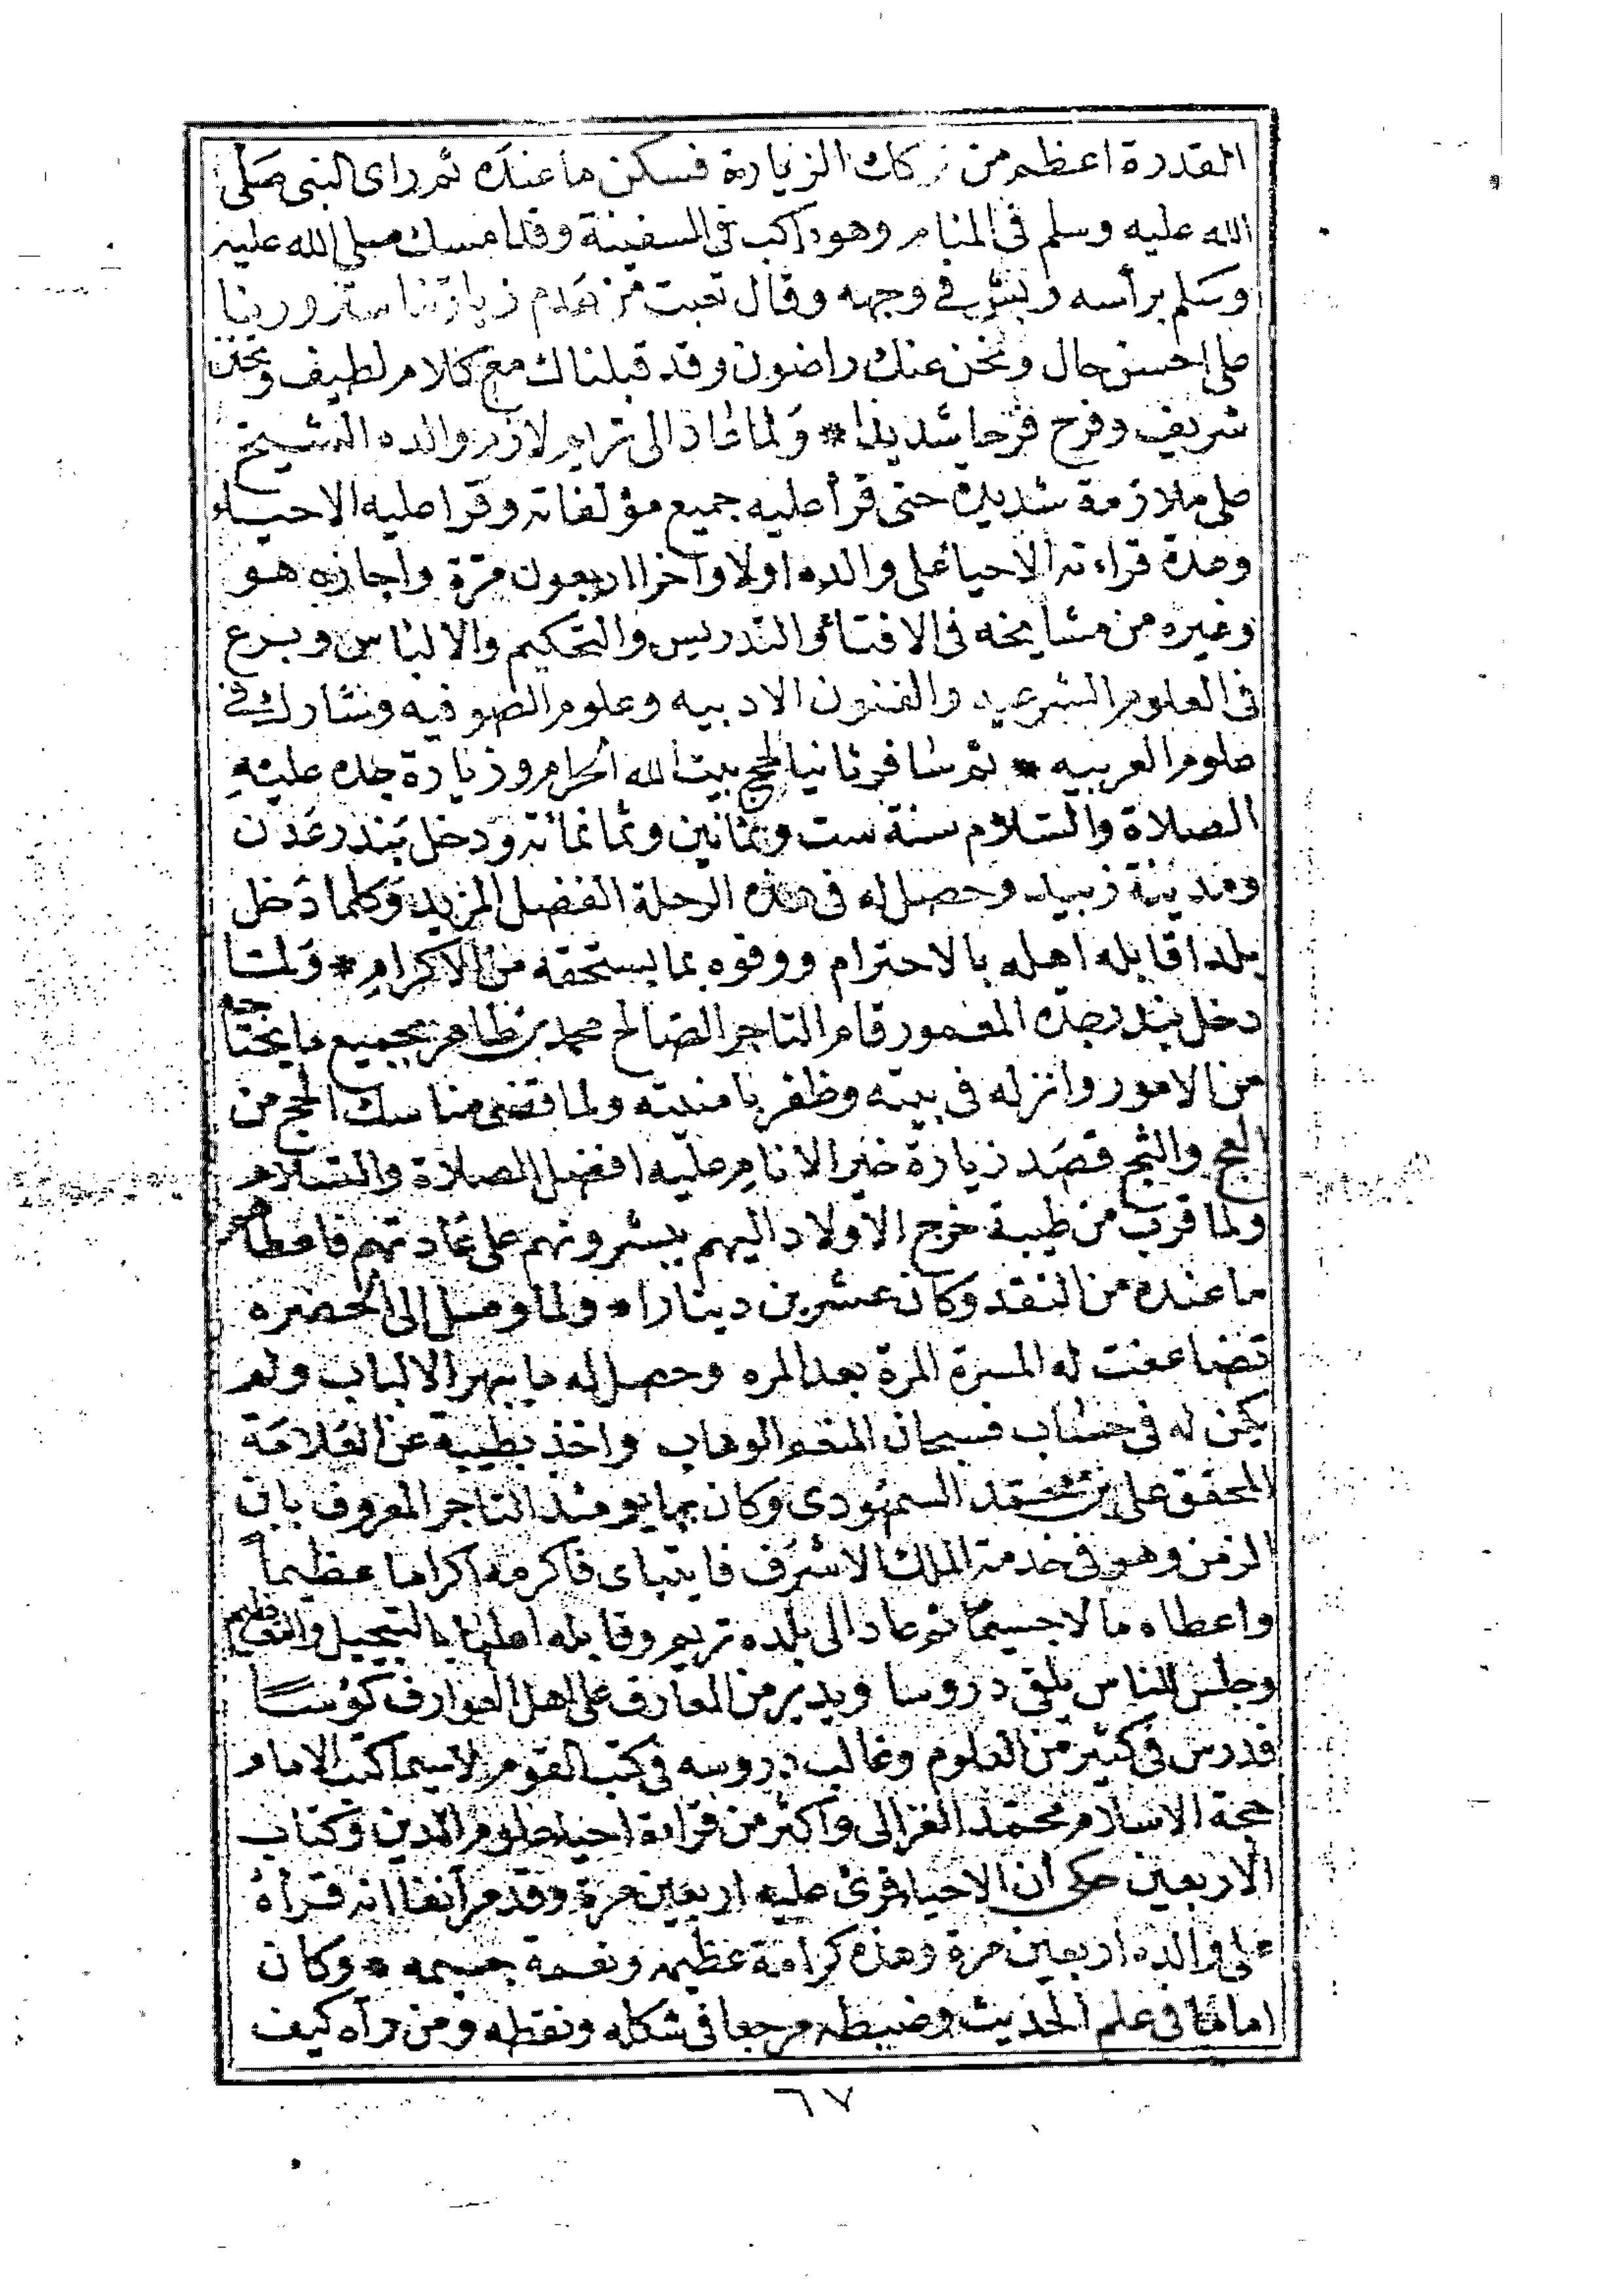 المقدرة اعظم من زكات الزيارة فسكن ما عنده ثم راى النبى صلى
الله عليه وسلم فى المنام وهو راكب فى السفينة وقد امسك صلى الله عليه
وسلم برأسه وبشر فى وجهه وقال تعبت من عدم زيارتنا ستزورنا
على احسن حال ونحن عنك راضون وقد قبلناك مع كلام لطيف
شريف وفرح فرحا شديدا * ولما عاد الى تريم لازم والده الشيخ
على ملازمة شديدة حتى قرأ عليه جميع مؤلفاته وقرا عليه الاحياء
ومدة قراءته الاحيا على والده اولا وآخرا اربعون مرة واجازه هو
وغيره من مشايخه فى الافتاء والتدريس والتحكيم والالباس وبرع
فى العلوم الشرعيه والفنون الادبيه وعلوم الصوفيه وشارك فى
علوم العربيه * ثم سافر ثانيا لحج بيت الله الحرام وزيارة جده عليه
الصلاة والسلام سنة ست وثمانين وثمانمائه ودخل بندر عدن
ومدينة زبيد وحصل له فى هذه الرحلة الفضل المزيد وكلما دخل
بلدا قابله اهله بالاحترام ووفوه بما يستحقه من الاكرام * ولما
دخل بندر جده المعمور قام التاجر الصالح محمد بن طاهر بجميع ما يحتاجه
من الامور وانزله فى بيته وظفر بامنيته ولما قضى مناسك الحج من
العج والثج قصد زيارة خير الانام عليه افضل الصلاة والسلام
ولما قرب من طيبة خرج الاولاد اليهم يبشرونهم على عادتهم فاعطاهم
ما عنده من النقد وكان عشرين دينارا * ولما وصل الى الحضره
تضاعفت له المسرة المرة بعد المره وحصل له ما يبهر الالباب ولم
يكن له فى حساب فسبحان المنعم الوهاب واخذ بطيبة عن العلامة
المحقق على بن محمد السمهودى وكان بها يومئذ التاجر المعروف بابن
الزمن وهو فى خدمة الملك الاشرف قايتباى فاكرمه اكراما عظيما
واعطاه مالا جسيما ثم عاد الى بلده تريم وقابله اهلها بالتبجيل والتعظيم
وجلس للناس يلقى دروسا ويدير من المعارف على اهل العوارف كؤسا
فدرس فى كثير من العلوم وغالب دروسه فى كتب القوم لاسيما كتب الامام
حجة الاسلام محمد الغزالى واكثر من قراءة احياء علوم الدين وكتاب
الاربعين حكى ان الاحياء قرئ عليه اربعين مرة وقد مر آنفا انه قرأه
على والده اربعين مرة وهذه كرامة عظيمه ونعمة جسيمه * وكان
اماما فى علم الحديث وضبطه مرجعا فى شكله ونقطه ومن رآه كيف
٦٧